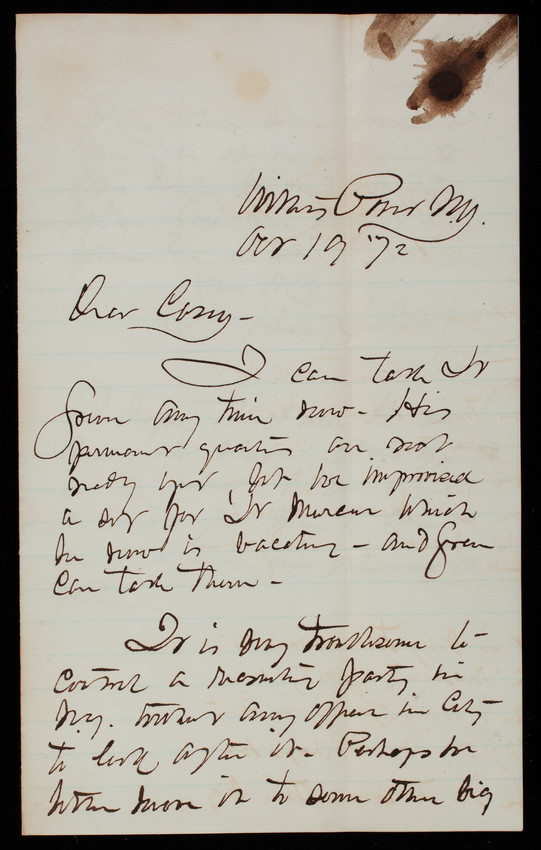 Willets Point N.Y.
Oct 19 '72
Dear Casey -
I can take Lt
Green any time now - His
permanent quarters are not
ready yet but we improvised
a set for Lt Mercur which
he now is vacating - and Green
can take them -
It is very troublesome to
control a recruiting party in
N.Y. without any officer in City
to look after it - Perhaps we
better move it to some other big